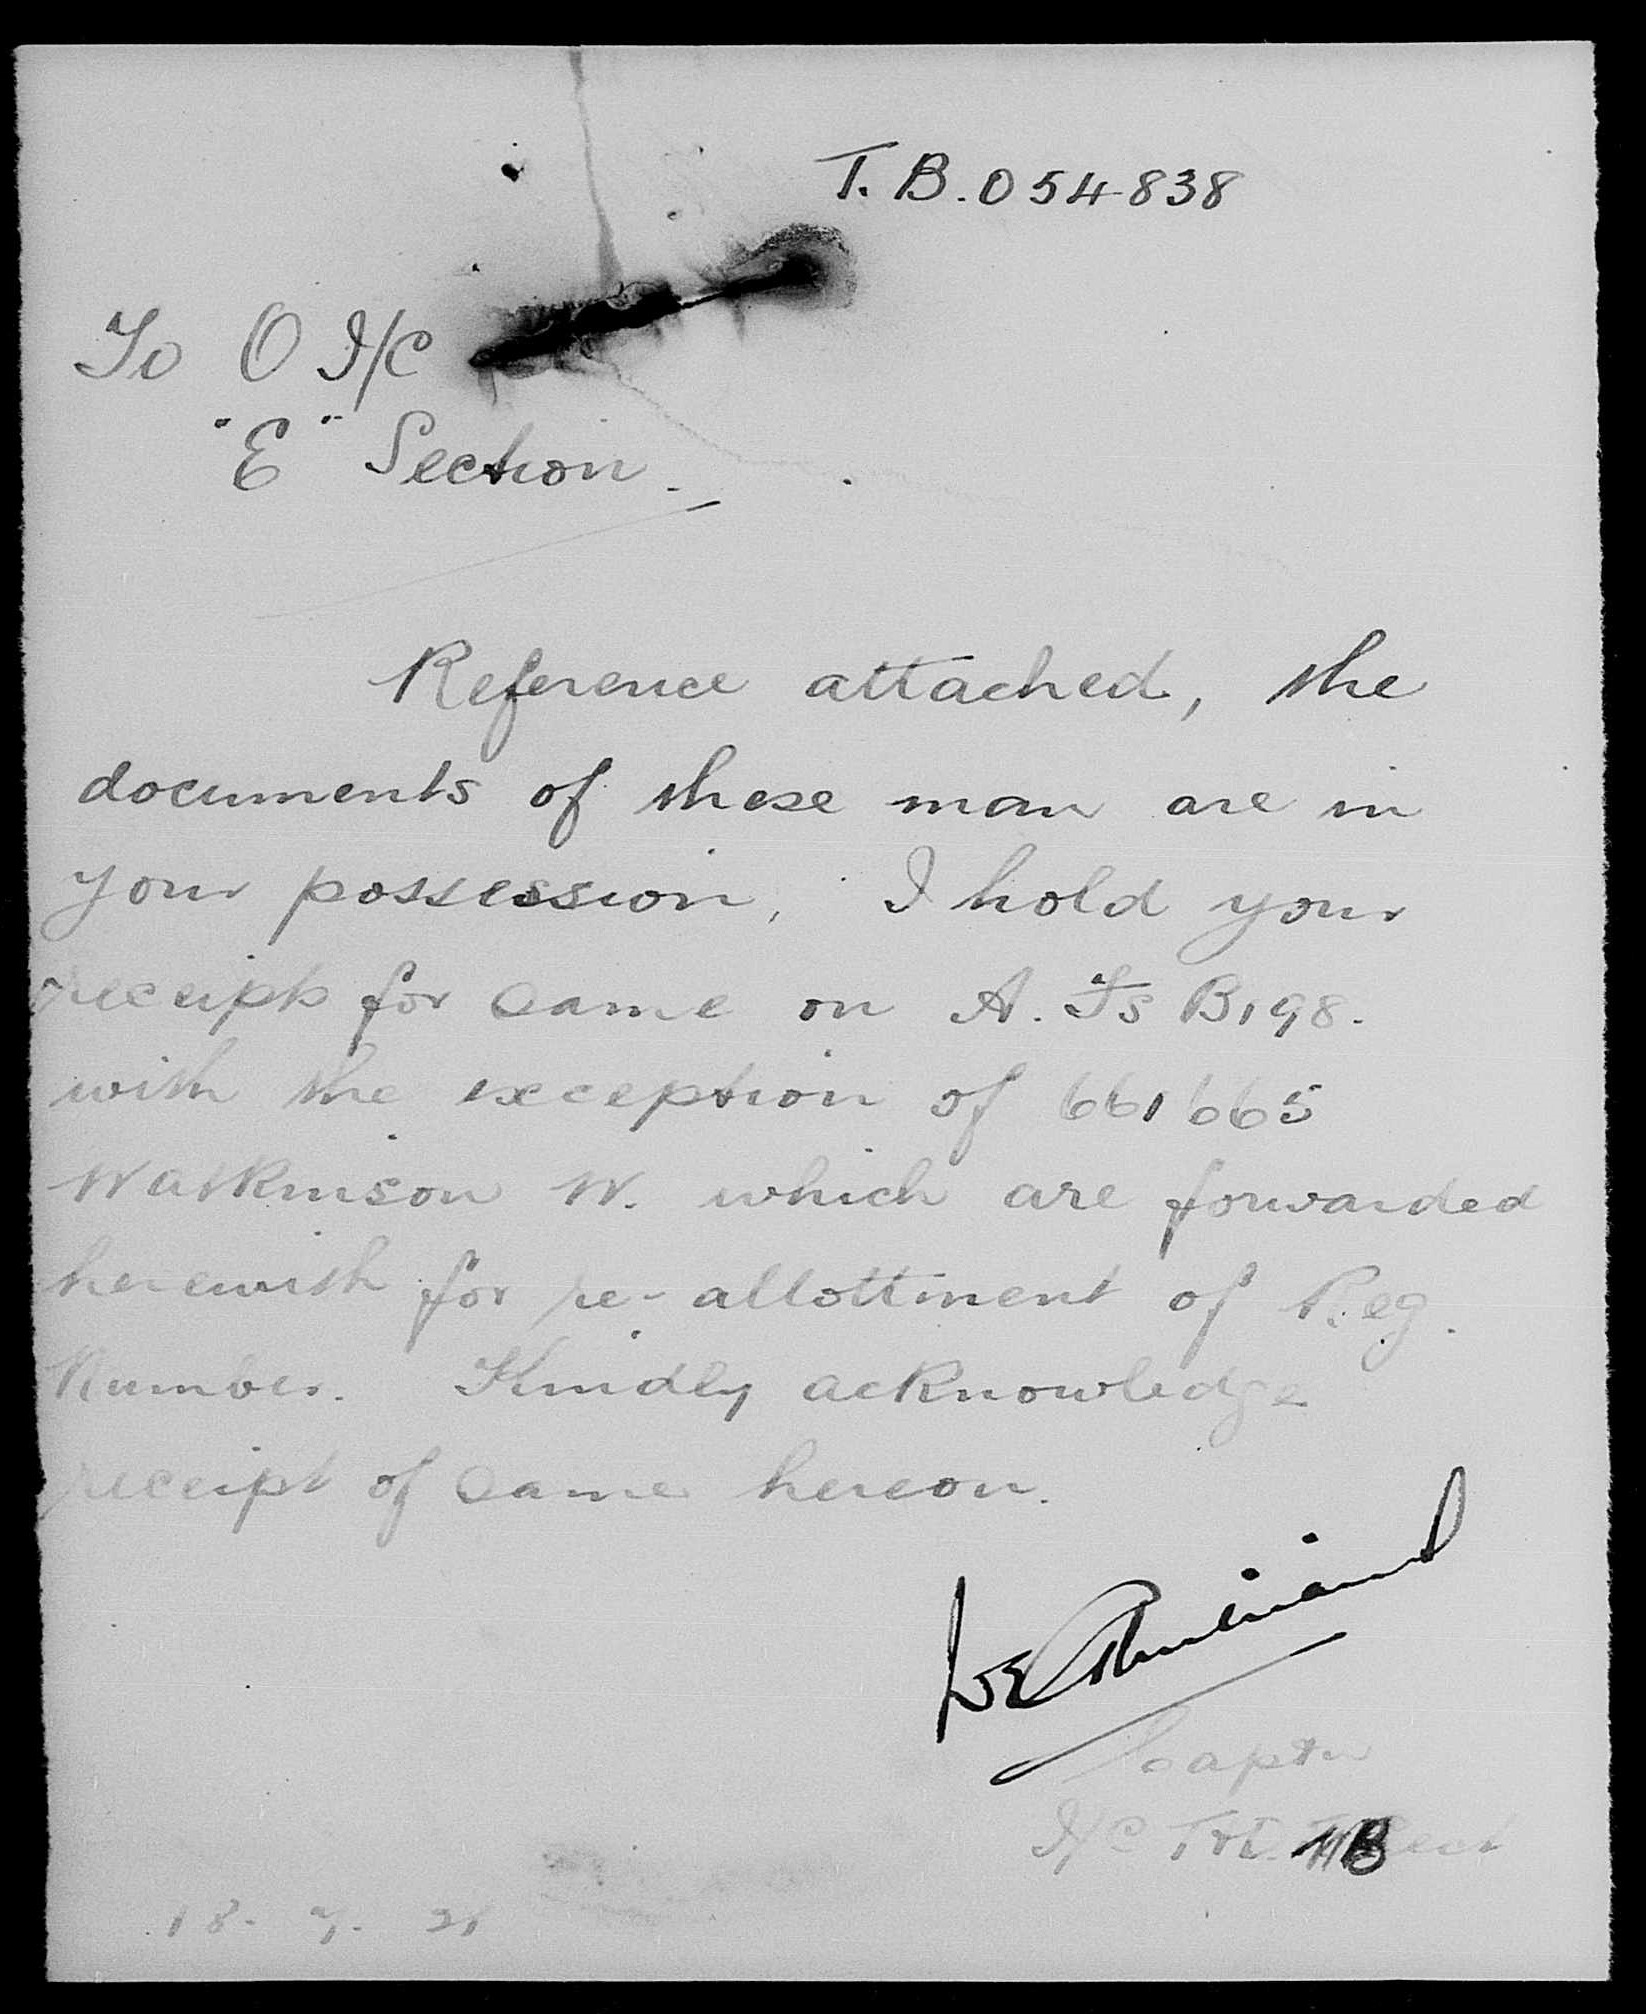 T. B. 054838
To O I/C
"E" Section.
Reference attached, the
documents of these man are in
your possession, I hold your
receipts for same on A. Fs B198.
with the exception of 661665
Watkinson W. which are forwarded
herewith for re-allottment of Reg.
Number. Kindly acknowledge
receipt of same hereon.
Captn
I/C
18. 7. 21